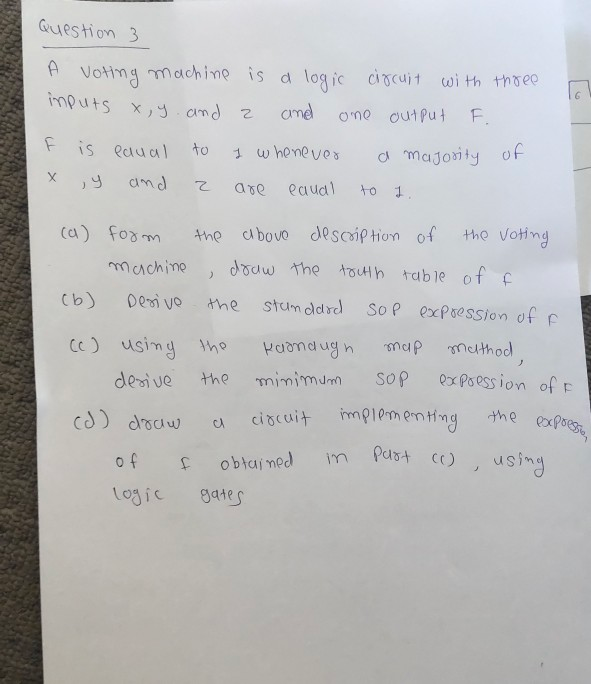 Question 3
A Voting machine is a logic circuit with three
inputs x, y and z and one output F.
F is equal to 1 whenever a majority of
x , y and z are equal to 1.
(a) form the above description of the voting
machine , draw the truth table of f
(b) Derive the standard SOP expression of F
(c) using the Karnaugh map method,
derive the minimum SOP expression of F
(d) draw a circuit implementing the
of f obtained in part (c) , using
logic gates